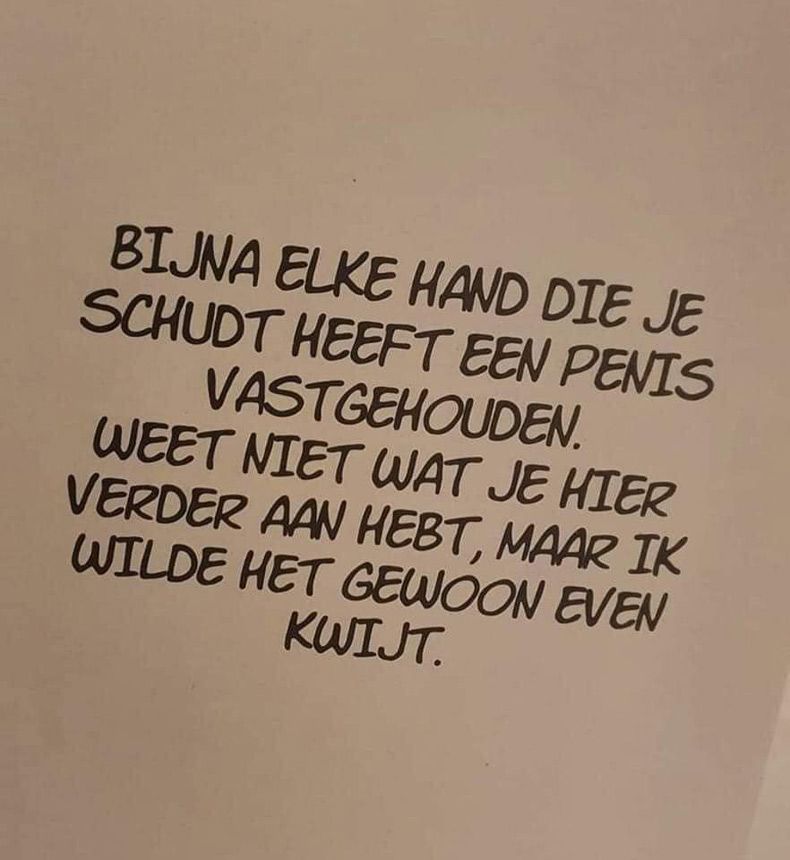 BIJNA ELKE HAND DIE JE
SCHUDT HEEFT EEN PENIS
VASTGEHOUDEN.
WEET NIET WAT JE HIER
VERDER AAN HEBT, MAAR IK
WILDE HET GEWOON EVEN
KWIJT.